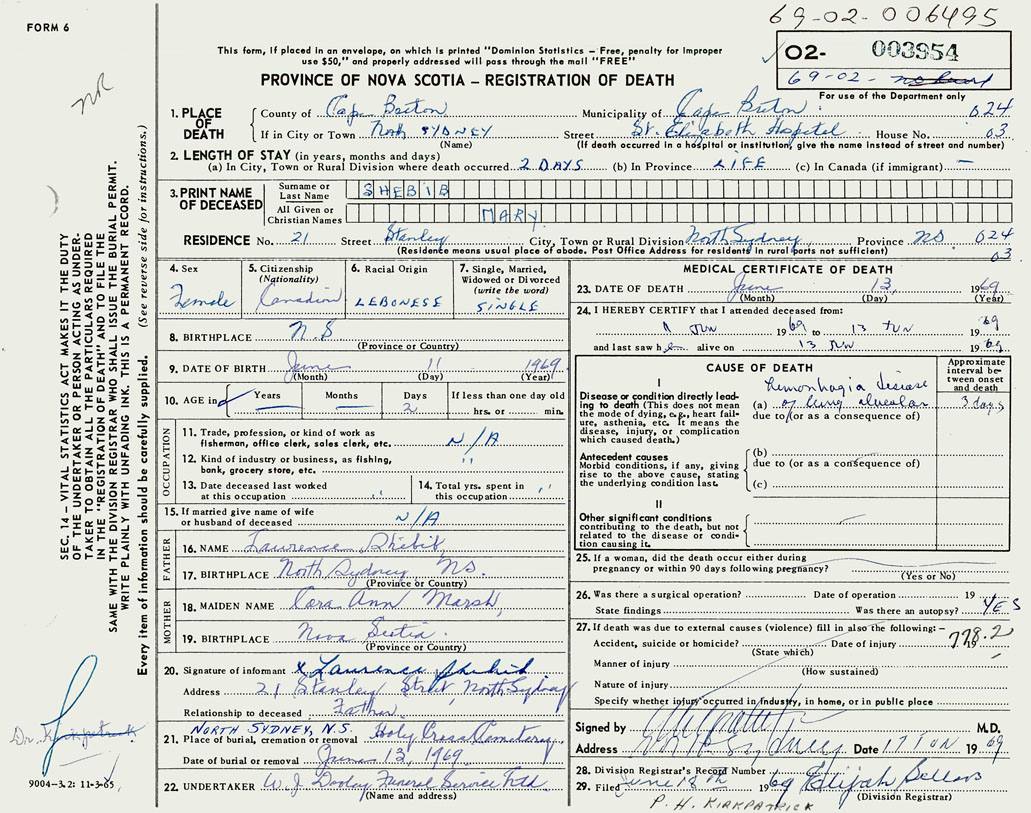 69-02-006495
FORM 6
This form, if placed in an envelope, on which is printed "Dominion Statistics – Free, penalty for improper
use $50," and properly addressed will pass through the mail "FREE"
02- 003954
69-02-
PROVINCE OF NOVA SCOTIA – REGISTRATION OF DEATH
For use of the Department only
NR
1. PLACE OF DEATH
County of Cape Breton Municipality of Cape Breton 024
If in City or Town North SYDNEY Street St. Elizabeth Hospital House No. 03
(Name) (If death occurred in a hospital or institution, give the name instead of street and number)
2. LENGTH OF STAY (in years, months and days)
(a) In City, Town or Rural Division where death occurred 2 DAYS (b) In Province LIFE (c) In Canada (if immigrant) —
3. PRINT NAME OF DECEASED
Surname or Last Name SHEBIB
All Given or Christian Names MARY
RESIDENCE No. 21 Street Stanley City, Town or Rural Division North Sydney Province NS 024
(Residence means usual place of abode. Post Office Address for residents in rural parts not sufficient) 03
4. Sex
Female
5. Citizenship
(Nationality)
Canadian
6. Racial Origin
LEBONESE
7. Single, Married,
Widowed or Divorced
(write the word)
SINGLE
8. BIRTHPLACE N.S
(Province or Country)
9. DATE OF BIRTH June 11 1969
(Month) (Day) (Year)
10. AGE in Years Months Days If less than one day old
2 hrs. or min.
OCCUPATION
11. Trade, profession, or kind of work as
fisherman, office clerk, sales clerk, etc. N/A
12. Kind of industry or business, as fishing,
bank, grocery store, etc. "
13. Date deceased last worked
at this occupation "
14. Total yrs. spent in
this occupation "
15. If married give name of wife
or husband of deceased N/A
FATHER
16. NAME Laurence Shebib
17. BIRTHPLACE North Sydney NS.
(Province or Country)
MOTHER
18. MAIDEN NAME Cora Ann Marsh
19. BIRTHPLACE Nova Scotia.
(Province or Country)
20. Signature of informant x Laurence Shebib
Address 21 Stanley Street, North Sydney
Relationship to deceased Father
NORTH SYDNEY, N.S. Holy Cross Cemetery
21. Place of burial, cremation or removal
Date of burial or removal June 13, 1969
22. UNDERTAKER W. J. Dooley Funeral Service Ltd
(Name and address)
MEDICAL CERTIFICATE OF DEATH
23. DATE OF DEATH June 13, 1969
(Month) (Day) (Year)
24. I HEREBY CERTIFY that I attended deceased from:
11 JUN 1969 to 13 JUN 1969
and last saw her alive on 13 JUN 1969
CAUSE OF DEATH
Approximate
interval be-
tween onset
and death
I
Disease or condition directly lead-
ing to death (This does not mean
the mode of dying, e.g., heart fail-
ure, asthenia, etc. It means the
disease, injury, or complication
which caused death.)
Hemorrhagia disease
(a) of lung alveolar 3 days
due to (or as a consequence of)
Antecedent causes
Morbid conditions, if any, giving
rise to the above cause, stating
the underlying condition last.
(b)
due to (or as a consequence of)
(c)
II
Other significant conditions
contributing to the death, but not
related to the disease or condi-
tion causing it.
25. If a woman, did the death occur either during
pregnancy or within 90 days following pregnancy?
(Yes or No)
26. Was there a surgical operation? Date of operation 19
State findings Was there an autopsy? YES
27. If death was due to external causes (violence) fill in also the following: – 778.2
Accident, suicide or homicide? Date of injury 19
(State which)
Manner of injury
(How sustained)
Nature of injury
Specify whether injury occurred in industry, in home, or in public place
Signed by M.D.
Address N. Sydney Date 17 JUN 1969
28. Division Registrar's Record Number
29. Filed June 18th 1969 Elijah Bellows
(Division Registrar)
P. H. KIRKPATRICK
SEC. 14 – VITAL STATISTICS ACT MAKES IT THE DUTY
OF THE UNDERTAKER OR PERSON ACTING AS UNDER-
TAKER TO OBTAIN ALL THE PARTICULARS REQUIRED
IN THE "REGISTRATION OF DEATH" AND TO FILE THE
SAME WITH THE DIVISION REGISTRAR WHO SHALL ISSUE THE BURIAL PERMIT.
WRITE PLAINLY WITH UNFADING INK. THIS IS A PERMANENT RECORD.
Every item of information should be carefully supplied. (See reverse side for instructions.)
Dr. Kirkpatrick
9004-3.2: 11-3-65